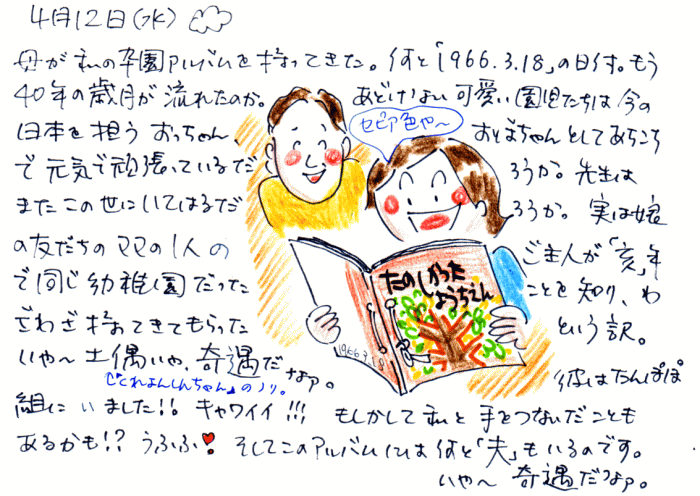 4月12日(水)
母が私の卒園アルバムを持ってきた。何と「1966.3.18」の日付。もう
40年の歳月が流れたのか。 あどけない可愛い園児たちは今の
日本を担う おっちゃん、 おばちゃんとしてあちこち
セピア色や〜
で元気で頑張っているだ ろうか。先生は
またこの世にいてはるだ ろうか。 実は娘
の友だちのママの1人の ご主人が「亥」年
で同じ幼稚園だった ことを知り、わ
ざわざ持ってきてもらった という訳。
たのしかった
ようちえん
1966.3.18
いや〜 土偶いや、奇遇だ なァ。 彼はたんぽぽ
「くれよんしんちゃん」のノリ。
組にいました!! キャワイイ!!! もしかして私と手をつないだことも
あるかも!? うふふ♥ そしてこのアルバムには何と「夫」もいるのです。
いや〜 奇遇だなァ。